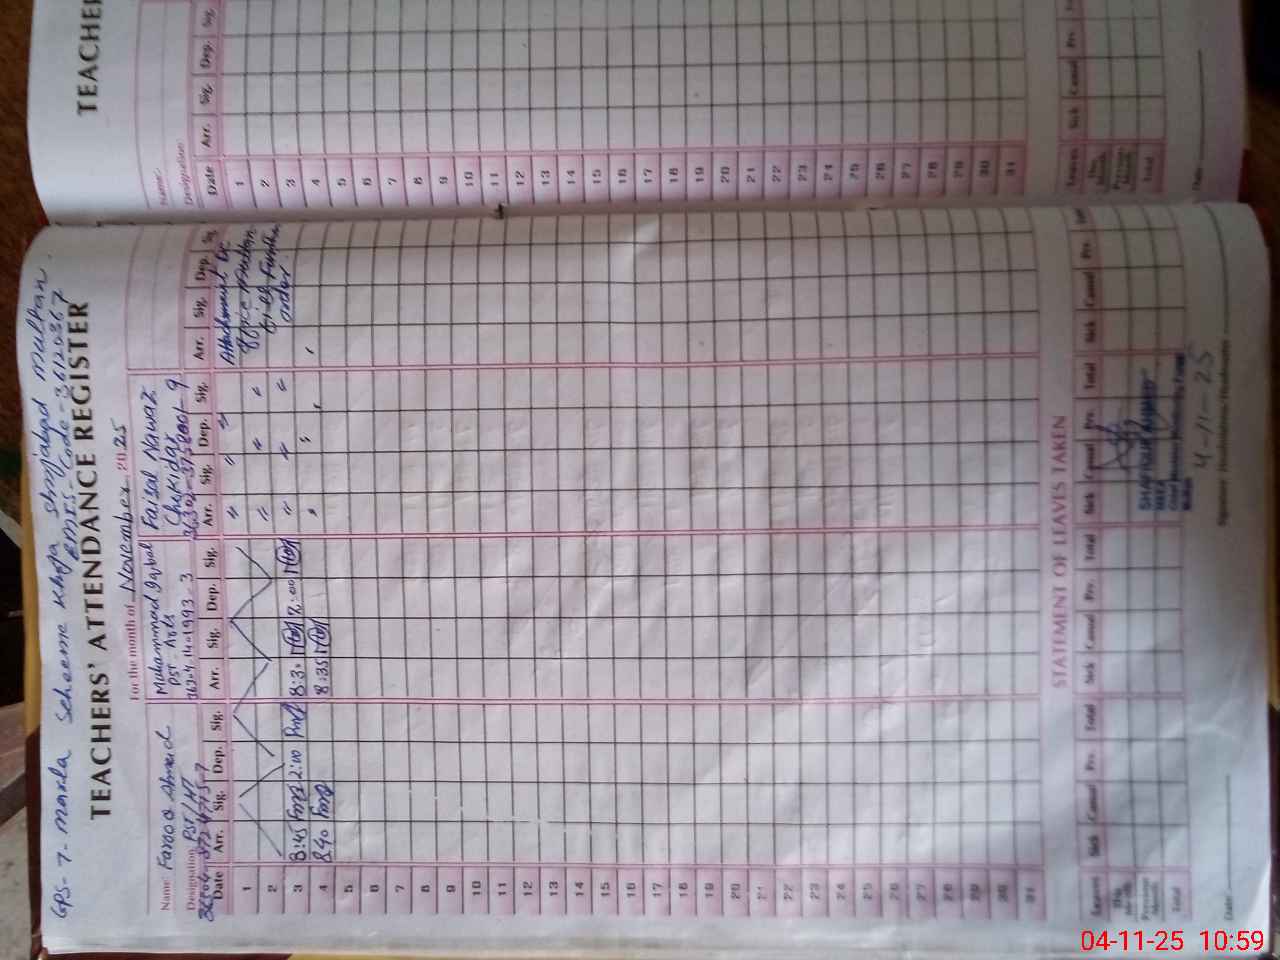 GPS-7-marla Scheeme Khoja shujabad multan.
EMIS-Code-36120367
TEACHERS' ATTENDANCE REGISTER
For the month of November 2025
Name: Farooq Ahmad
Muhammad Iqbal
Faisal Nawaz
Designation PST/HT
PST-Arts
Chukidar
Date Arr. Sig. Dep. Sig. Arr. Sig. Dep. Sig. Arr. Sig. Dep. Sig. Arr. Sig. Dep. Sig.
Attachment DC
office multan
till further
order.
1
2
3 8:45 2:00 8:30 2:00
4 840 8:35
5
6
7
8
9
10
11
12
13
14
15
16
17
18
19
20
21
22
23
24
25
26
27
28
29
30
31
STATEMENT OF LEAVES TAKEN
Leaves Sick Casual Prv. Total Sick Casual Prv. Total Sick Casual Prv. Total Sick Casual Prv.
This Month
Previous Month
Total
SHAFIQUE AHMED
4-11-25
Date:
Signature Headmistress/Headmaster
TEACHER
Name:
Designation:
Date Arr. Sig. Dep. Sig.
1
2
3
4
5
6
7
8
9
10
11
12
13
14
15
16
17
18
19
20
21
22
23
24
25
26
27
28
29
30
31
Leaves Sick Casual Prv.
This Month
Previous Month
Total
Date:
04-11-25 10:59